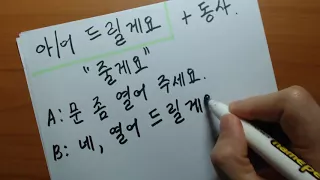 아/어 드릴게요 + 동사.
"줄게요"
A: 문 좀 열어 주세요.
B: 네, 열어 드릴게요